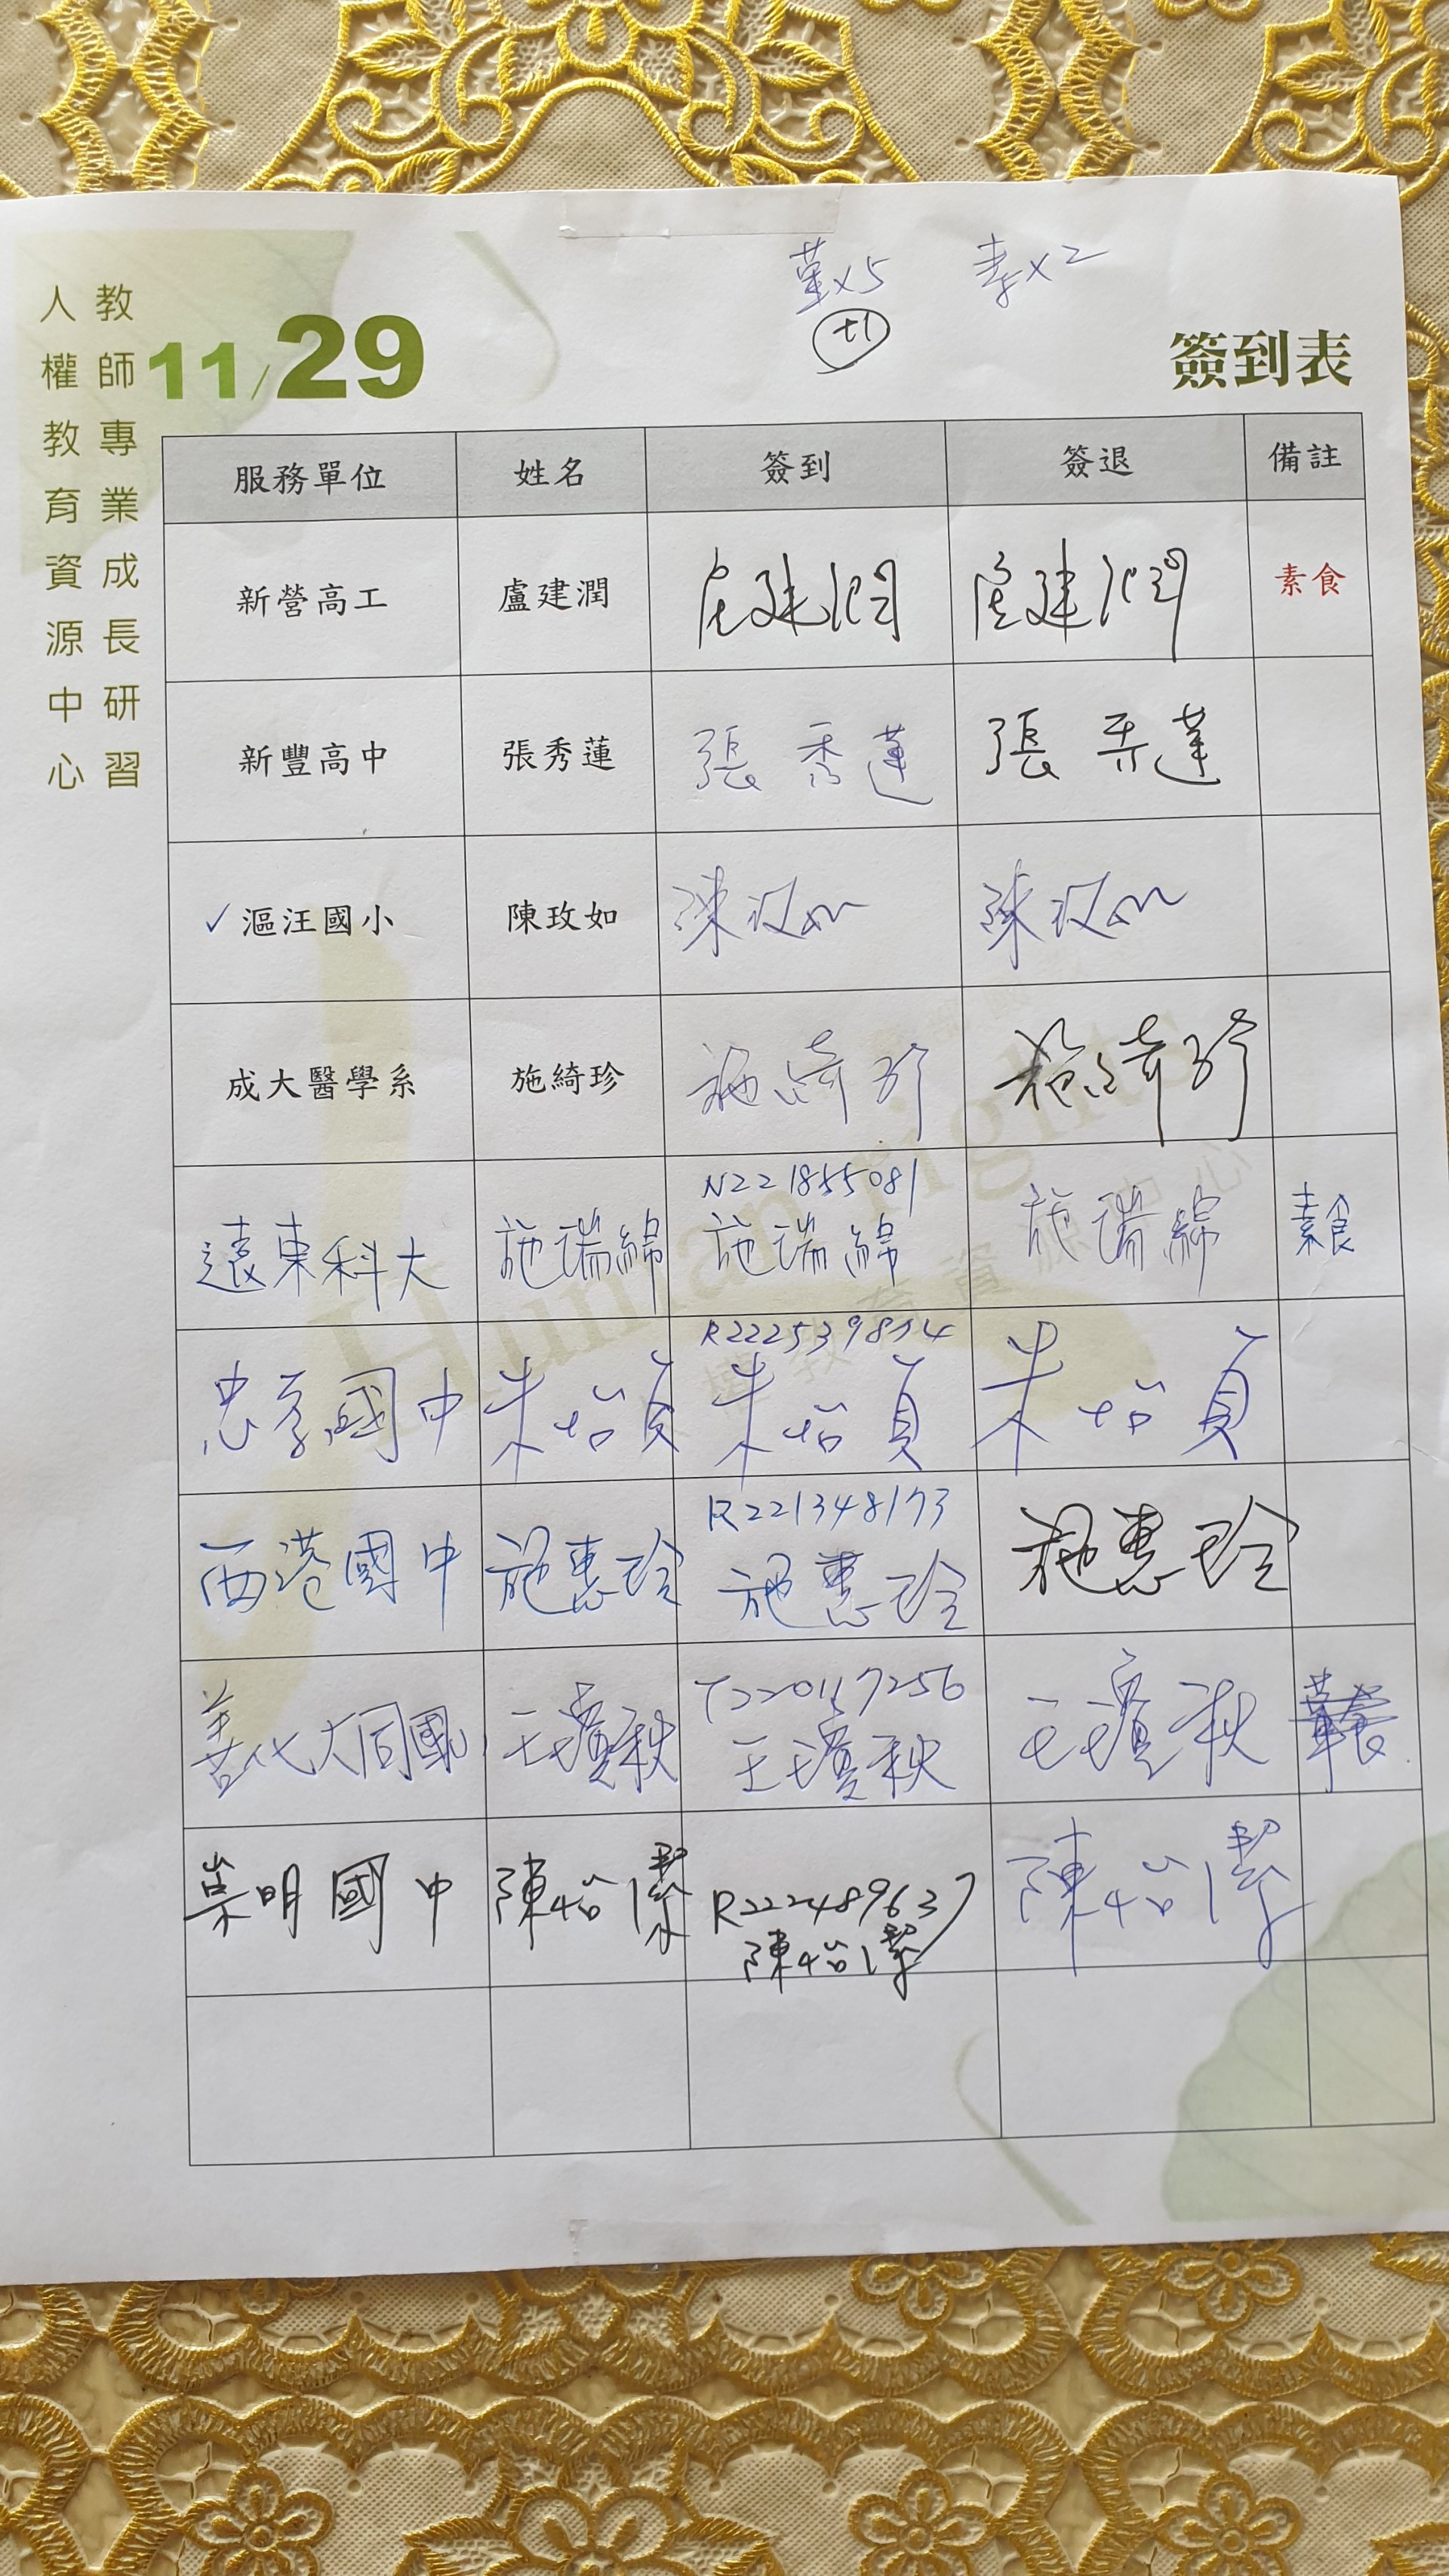 葷x5 素x2
+1
教師專業成長研習
人權教育資源中心
11/29
簽到表
服務單位 姓名 簽到 簽退 備註
新營高工 盧建潤 盧建潤 盧建潤 素食
新豐高中 張秀蓮 張秀蓮 張秀蓮
✓漚汪國小 陳玫如 陳玫如 陳玫如
成大醫學系 施綺珍 施綺珍 施綺珍
N221855081
遠東科大 施瑞綿 施瑞綿 施瑞綿 素食
忠孝國中 朱怡貞 朱怡貞 朱怡貞
R221348173
西港國中 施惠玲 施惠玲 施惠玲
善化大同國小 王瓊秋 王瓊秋 王瓊秋
R222489637
崇明國中 陳怡潔 陳怡潔 陳怡潔
Human rights